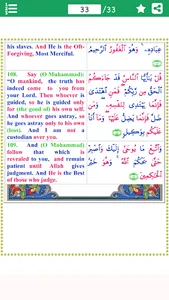 33 / 33
his slaves. And He is the Oft-
Forgiving, Most Merciful.
عِبَادِهِۦ ۚ وَهُوَ ٱلْغَفُورُ ٱلرَّحِيمُ
108. Say (O Muhammad):
"O mankind, the truth has
indeed come to you from
your Lord. Then whoever is
guided, so he is guided only
for (the good of) his own self.
And whoever goes astray, so
he goes astray only to his own
(loss). And I am not a
custodian over you".
قُلْ يَٰٓأَيُّهَا ٱلنَّاسُ قَدْ جَآءَكُمُ
ٱلْحَقُّ مِن رَّبِّكُمْ ۖ فَمَنِ ٱهْتَدَىٰ
فَإِنَّمَا يَهْتَدِى لِنَفْسِهِۦ ۖ وَمَن ضَلَّ
فَإِنَّمَا يَضِلُّ عَلَيْهَا ۖ وَمَآ أَنَا۠
عَلَيْكُم بِوَكِيلٍ
109. And (O Muhammad)
follow that which is
revealed to you, and remain
patient until Allah gives
judgment. And He is the Best
of those who judge.
وَٱتَّبِعْ مَا يُوحَىٰٓ إِلَيْكَ وَٱصْبِرْ
حَتَّىٰ يَحْكُمَ ٱللَّهُ ۚ وَهُوَ خَيْرُ
ٱلْحَٰكِمِينَ